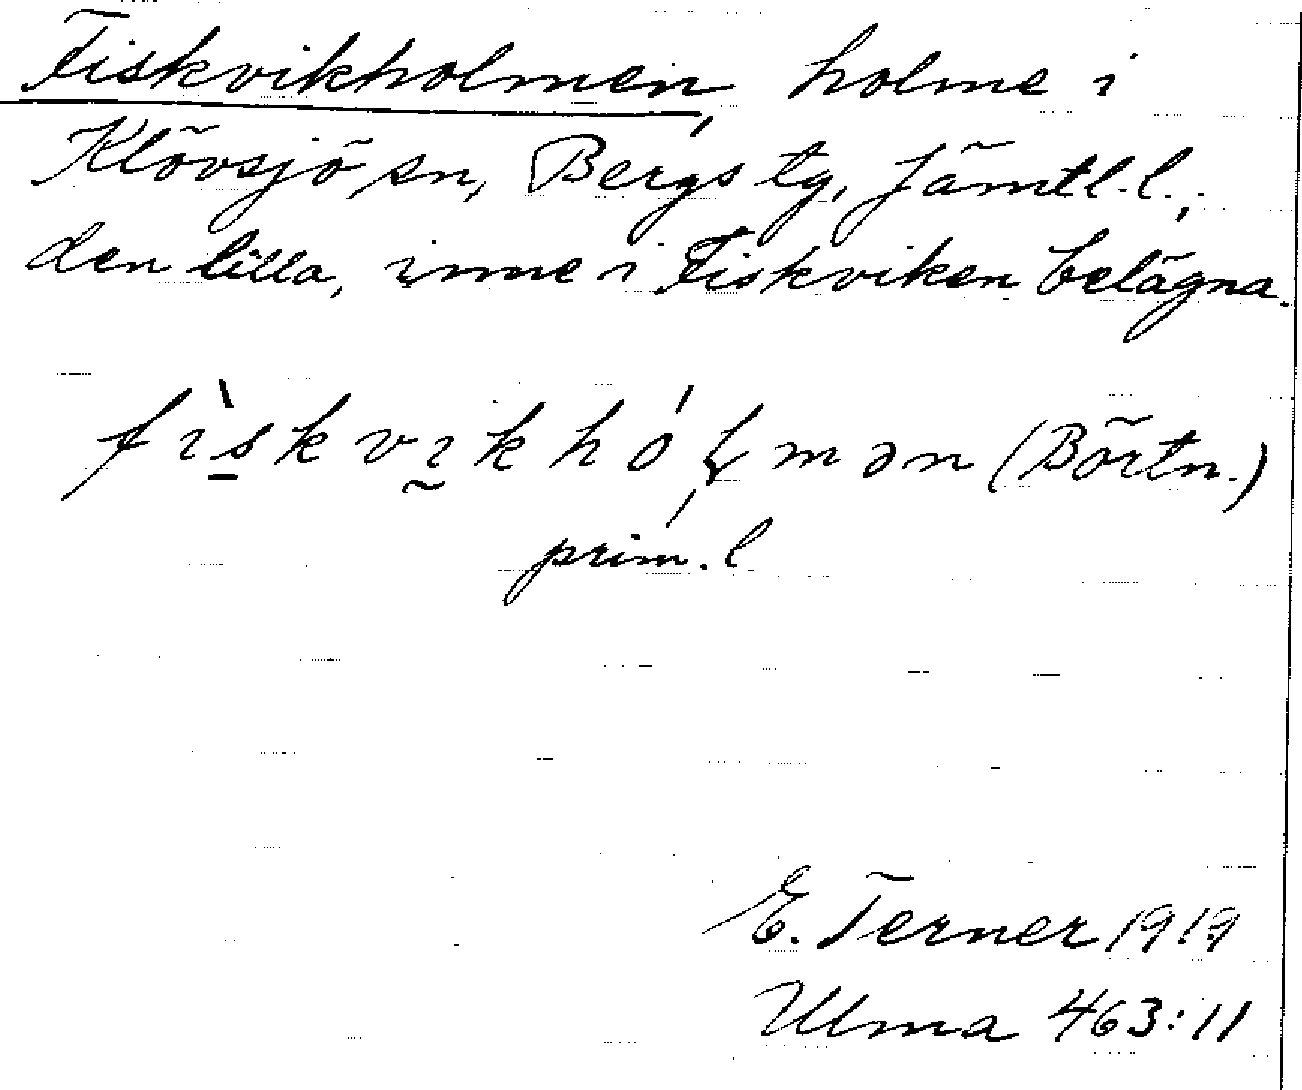 Fiskvikholmen, holme i
Klövsjö sn, Bergs tg, Jämtl.l.,
den lilla, inne i Fiskviken belägna.
fìskvikhólmən (Börtn.)
prim. l
E. Terner 1919
Ulma 463:11